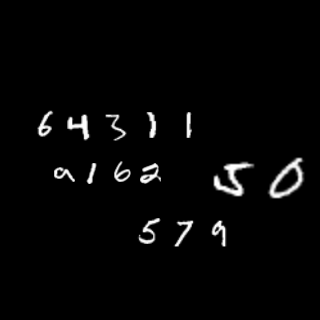 64311
9162
50
579